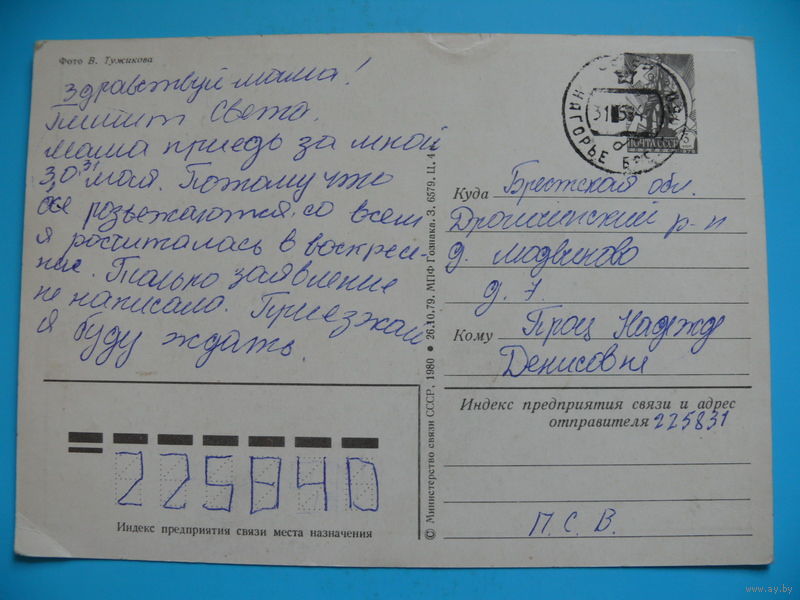 Фото В. Тужикова
Здравствуй мама!
Пишит Света.
Мама приедь за мной
30, 31 мая. Потому что
все розьежаются, со всем
я росчиталась в воскресе-
ние. Только заявление
не написала. Приезжай
я буду ждать.
225840
Индекс предприятия связи места назначения
© Министерство связи СССР, 1980 • 26.10.79. МПФ Гознака. З. 6579. Ц. 4
НАГОРЬЕ
ПОЧТА СССР
Куда Брестская обл.
р-н
д.
д. 7
Кому Проц Надежд
Денисовне
Индекс предприятия связи и адрес
отправителя 225831
П. С. В.
www.ay.by